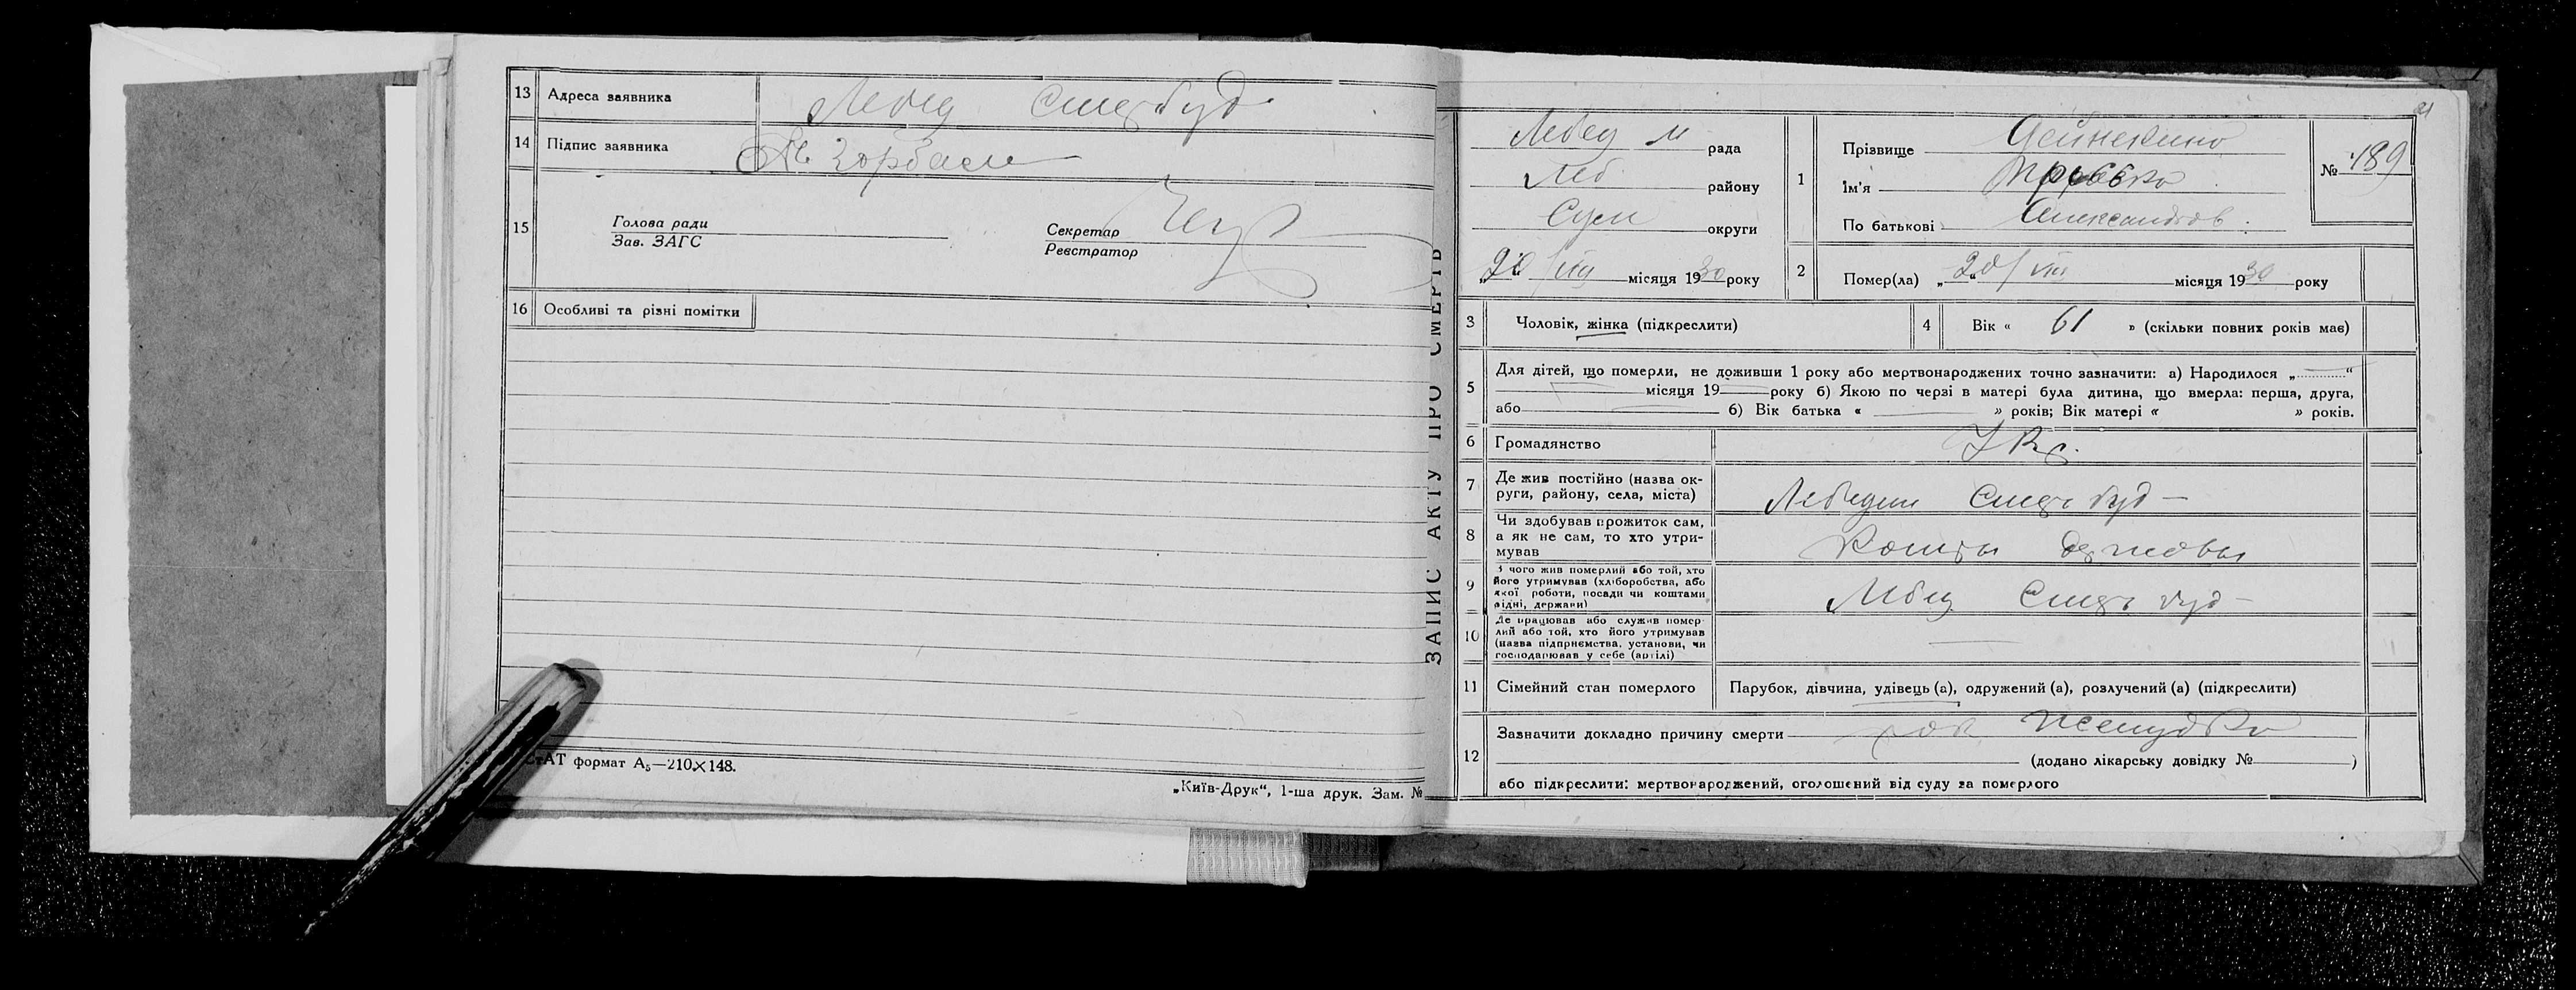 13 Адреса заявника Лебед Спецбуд
14 Підпис заявника Горбасе
15 Голова ради
Зав. ЗАГС
Секретар
Реєстратор
16 Особливі та різні помітки
СтАТ формат А5—210×148.
„Київ-Друк“, 1-ша друк. Зам. №
ЗАПИС АКТУ ПРО СМЕРТЬ
21
Лебед м рада
Леб району
Сум округи
„20 / VIII місяця 1930 року
1 Прізвище
Ім'я
По батькові Александров
№ 189
2 Помер(ла) „20/ VIII місяця 1930 року
3 Чоловік, жінка (підкреслити)
4 Вік « 61 » (скільки повних років має)
5 Для дітей, що померли, не доживши 1 року або мертвонароджених точно зазначити: а) Народилося „ “
місяця 19 року б) Якою по черзі в матері була дитина, що вмерла: перша, друга,
або б) Вік батька « » років; Вік матері « » років.
6 Громадянство Укр.
7 Де жив постійно (назва ок-
руги, району, села, міста) Лебедин Спецбуд —
8 Чи здобував прожиток сам,
а як не сам, то хто утри-
мував Кошты державы
9 З чого жив померлий або той, хто
його утримував (хліборобства, або
якої роботи, посади чи коштами
рідні, держави) Лебед Спецбуд —
10 Де працював або служив помер-
лий або той, хто його утримував
(назва підприємства, установи, чи
господарював у себе (артілі)
11 Сімейний стан померлого Парубок, дівчина, удівець (а), одружений (а), розлучений (а) (підкреслити)
12 Зазначити докладно причину смерти рак желудка
(додано лікарську довідку № )
або підкреслити: мертвонароджений, оголошений від суду за померлого